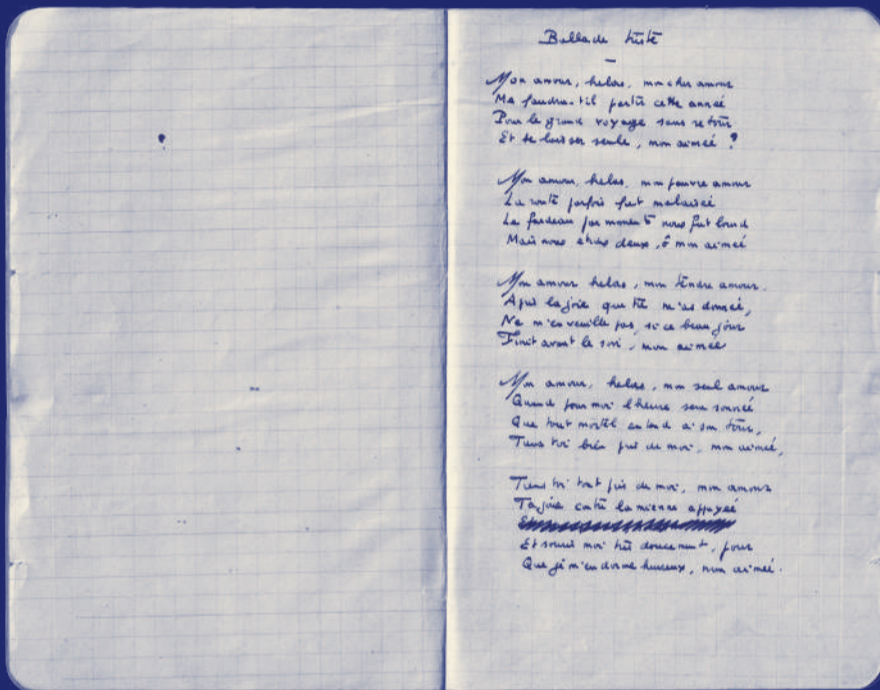 Ballade triste
Mon amour, helas, mon cher amour
Me faudra-t-il partir cette année
Pour le grand voyage sans retour
Et te laisser seule, mon aimée ?
Mon amour, helas, mon pauvre amour
La route parfois fut malaisée
Le fardeau par moments nous fut lourd
Mais nous étions deux, ô mon aimée
Mon amour helas, mon tendre amour.
Après la joie que tu m'as donnée,
Ne m'en veuille pas, si ce beau jour
Finit avant le soir, mon aimée
Mon amour, helas, mon seul amour
Quand pour moi l'heure sera sonnée
Que tout mortel entend à son tour,
Tiens toi bien près de moi, mon aimée,
Tiens toi tout près de moi, mon amour
Ta joue contre la mienne appuyée
Et souris moi très doucement, pour
Que je m'endorme heureux, mon aimée.